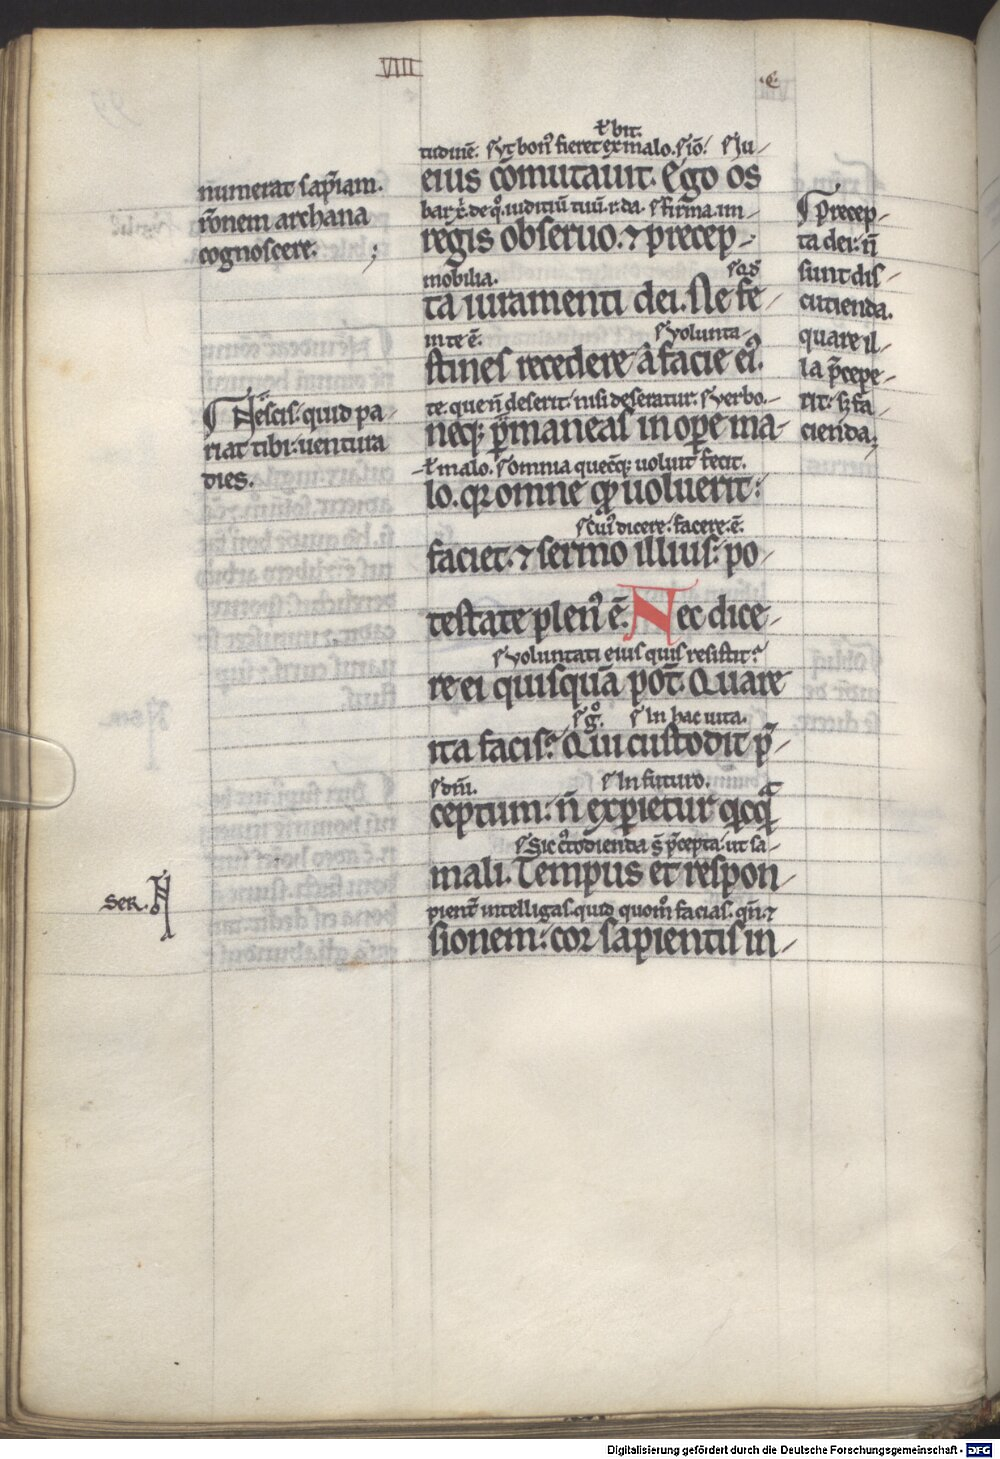 VIII
·C·
numerat sap̄iam.
rōnem archana
cognoscere. ;
¶ Nescis. quid pa-
riat tibi: uentura
dies.
Ser.
ł bit.
tudinē. ſ ut bonꝰ fieret ex malo. ſ iō. ſ Iu-
eius cōmutauit. Ego os
regis obseruo. ⁊ precep-
mobilia.
ta iuramenti dei. Ne fe-
in te ē. ſ uolunta-
stines recedere a facie eiꝰ.
te. que n̄ deserit. nisi deseratur. ſ uerbo.
neqꝫ ꝑmaneas in oꝑe ma-
ł malo. ſ omnia quecūqꝫ uoluit fecit.
lo. qꝛ omne qđ uoluerit:
ſ cuiꝰ dicere. facere. ē.
faciet. ⁊ sermo illius: po-
testate plenꝰ ē. Nec dice-
ſ uoluntati eius quis resistit?
re ei quisquā pōt. Quare
ſ gͦ. ſ In hac uita.
ita facis? Qui custodit p̄-
ſ dn̄i. ſ In futuro.
ceptum: n̄ exꝑietur qicqᷓ
mali. Tempus et respon-
pient̄ intelligas. quid quom̄ facias. qn̄. ⁊
sionem: cor sapientis in-
¶ Precep-
ta dei: n̄
sunt dis-
cutienda.
quare il-
la p̄cepe-
rit: sꝫ fa-
cienda;
Digitalisierung gefördert durch die Deutsche Forschungsgemeinschaft - DFG